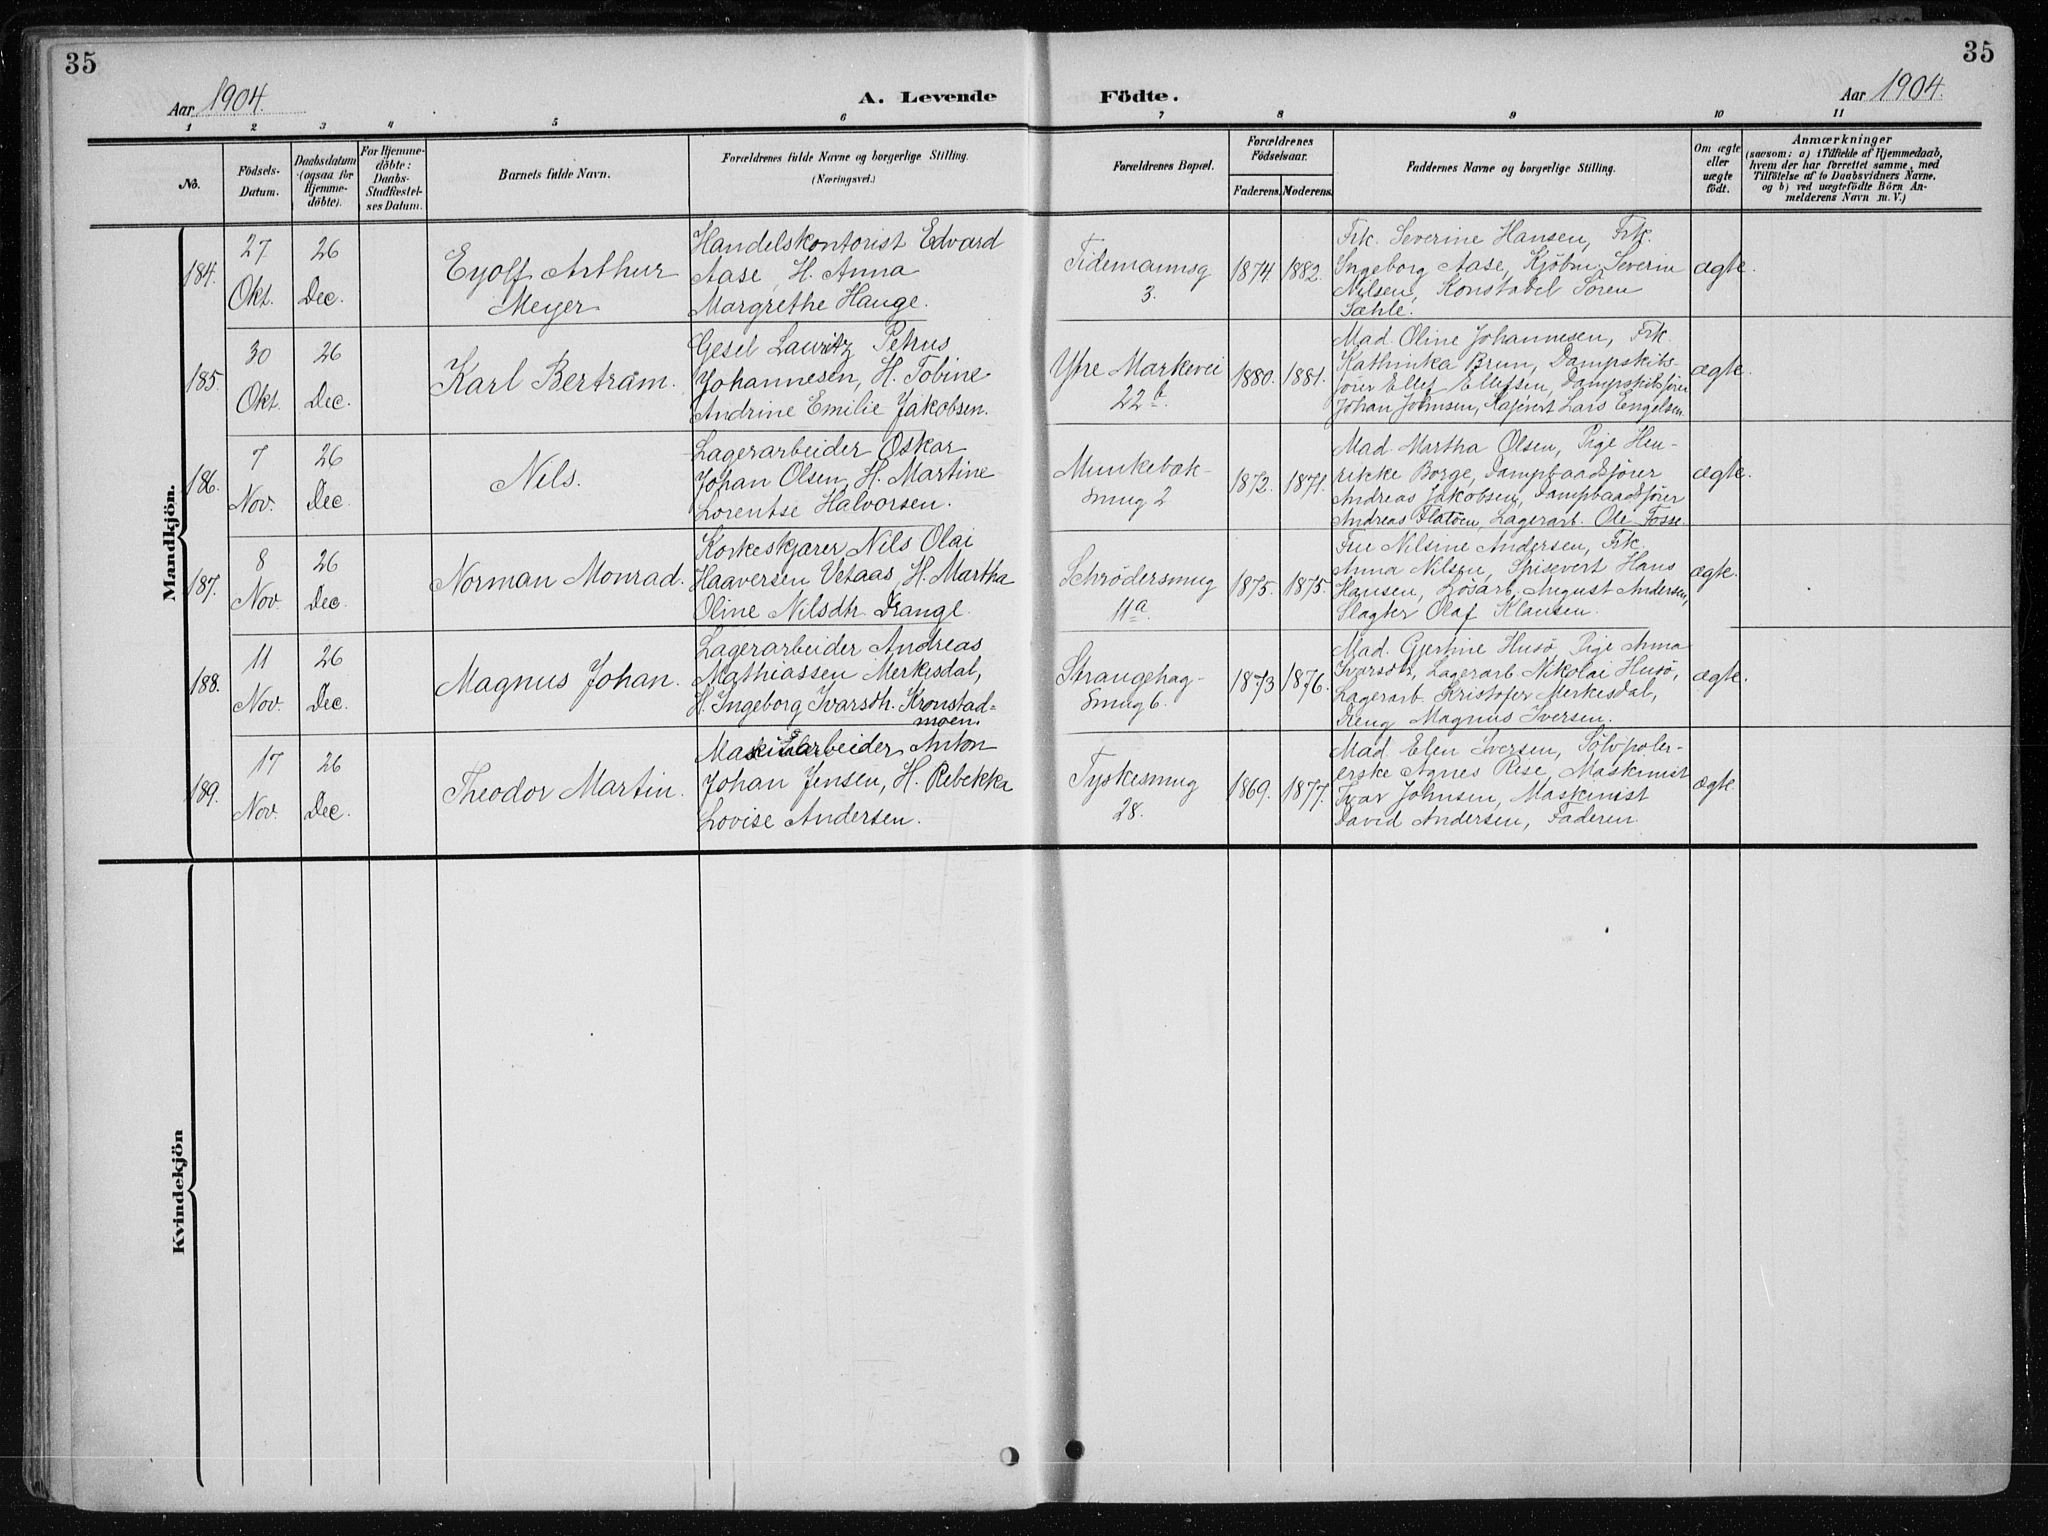 35
35
Aar 1904.
A. Levende Födte.
Aar 1904.
1 2 3 4 5 6 7 8 9 10 11
No.
Födsels-
Datum.
Daabsdatum
(ogsaa for
Hjemme-
döbte).
For Hjemme-
döbte:
Daabs-
Stadfæstel-
ses Datum.
Barnets fulde Navn.
Forældrenes fulde Navne og borgerlige Stilling.
(Næringsvei.)
Forældrenes Bopæl.
Forældrenes
Födselsaar.
Faderens. Moderens.
Faddernes Navne og borgerlige Stilling.
Om ægte
eller
uægte
födt.
Anmærkninger
(saasom: a) i Tilfælde af Hjemmedaab,
hvem der har forrettet samme, med
Tilföielse af to Daabsvidners Navne,
og b) ved uægtefödte Börn An-
melderens Navn m. V.)
Mandkjön.
184.
27
Okt.
26
Dec.
Eyolf Arthur
Meyer
Handelskontorist Edvard
Aase, H. Anna
Margrethe Hauge.
Tidemannsg
3.
1874
1882.
Frk. Severine Hansen, Frk.
Ingeborg Aase, Kjöbm. Severin
Nilsen, Konstabel Sören
Sæhle.
ægte.
185.
30
Okt.
26
Dec.
Karl Bertram.
Gesel Lauritz Petrus
Johannesen, H. Tobine
Andrine Emilie Jakobsen.
Ytre Markevei
22b.
1880.
1881.
Mad. Oline Johannesen, Frk.
Kathinka Brun, Dampskibs-
förer Ellef Ellefsen, Dampskibsförer
Johan Johnsen, Kafévert Lars Engelsen.
ægte.
186.
7
Nov.
26
Dec
Nils.
Lagerarbeider Oskar
Johan Olsen, H. Martine
Lorentse Halvorsen.
Munkebæk-
smug 2
1872.
1871.
Mad. Martha Olsen, Pige Hen-
rikke Borge, Dampbaadsförer
Andreas Jakobsen, Dampbaadsförer
Andreas Flatöen, Lagerarb. Ole Fosse.
ægte.
187.
8
Nov.
26
Dec.
Norman Monrad.
Korkeskjærer Nils Olai
Haaversen Vetaas, H. Martha
Oline Nilsdtr. Drange.
Schrödersmug
11a.
1875.
1875.
Fru Nilsine Andersen, Frk.
Anna Nilsen, Spisevert Hans
Hansen, Lösarb. August Andersen,
Slagter Olaf Klausen.
ægte.
188.
11
Nov.
26
Dec.
Magnus Johan.
Lagerarbeider Andreas
Mathiassen Merkisdal,
H. Ingeborg Ivarsdtr. Kronstad-
moen.
Strangehag-
smug 6.
1873
1876.
Mad. Gjertine Husö, Pige Anna
Ivarsdtr, Lagerarb Nikolai Husö,
Lagerarb. Kristofer Merkisdal,
Dreng Magnus Iversen.
ægte.
189.
17
Nov.
26
Dec.
Theodor Martin.
Anton
Johan Jensen, H. Rebekka
Lovise Andersen.
Tyskesmug
28.
1869.
1877.
Mad. Elen Iversen, Sölvpoler-
erske Agnes Rise, Maskinist
Ivar Johnsen, Maskinist
David Andersen, Faderen.
ægte.
Kvindekjön